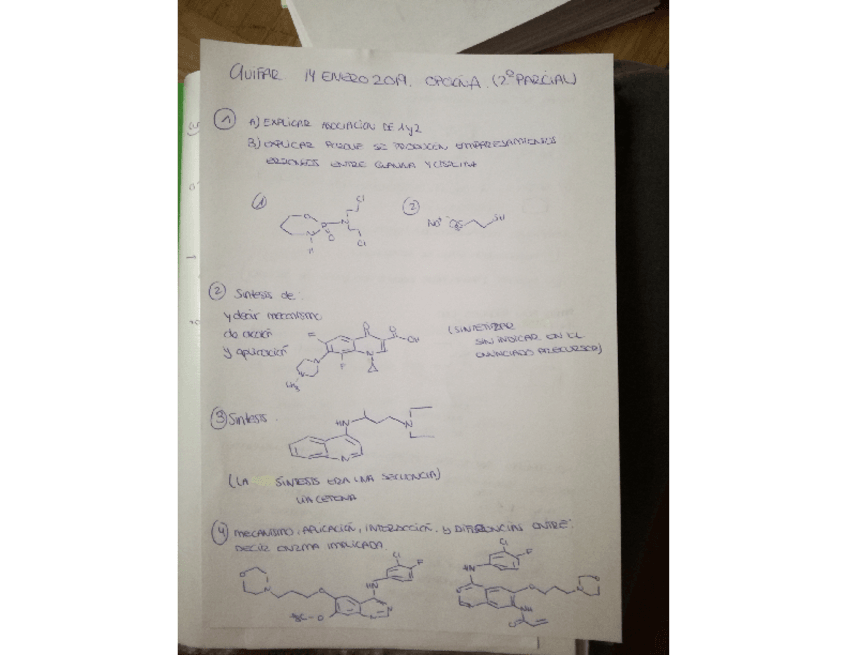 QUIFAR 14 ENERO 2019. OPCIÓN A. (2º PARCIAL)
① A) EXPLICAR ASOCIACIÓN DE 1 y 2
B) EXPLICAR PORQUE SE PRODUCEN
ENTRE Y
①
②
Cl
O
P
N
N
O
H
Cl
Na+
SH
② Síntesis de:
y decir mecanismo
de acción
y aplicación
(SINTETIZAR
SIN INDICAR EN EL
ENUNCIADO PRECURSOR)
F
O
O
OH
N
N
N
CH3
③ Síntesis.
HN
N
N
(LA SÍNTESIS ERA UNA SECUENCIA)
VIA CETONA
④ MECANISMO, APLICACIÓN, INTERACCIÓN. y DIFERENCIAS ENTRE:
DECIR ENZIMA IMPLICADA.
Cl
F
HN
O
N
O
N
N
H3C-O
Cl
F
HN
N
N
O
N
O
NH
O